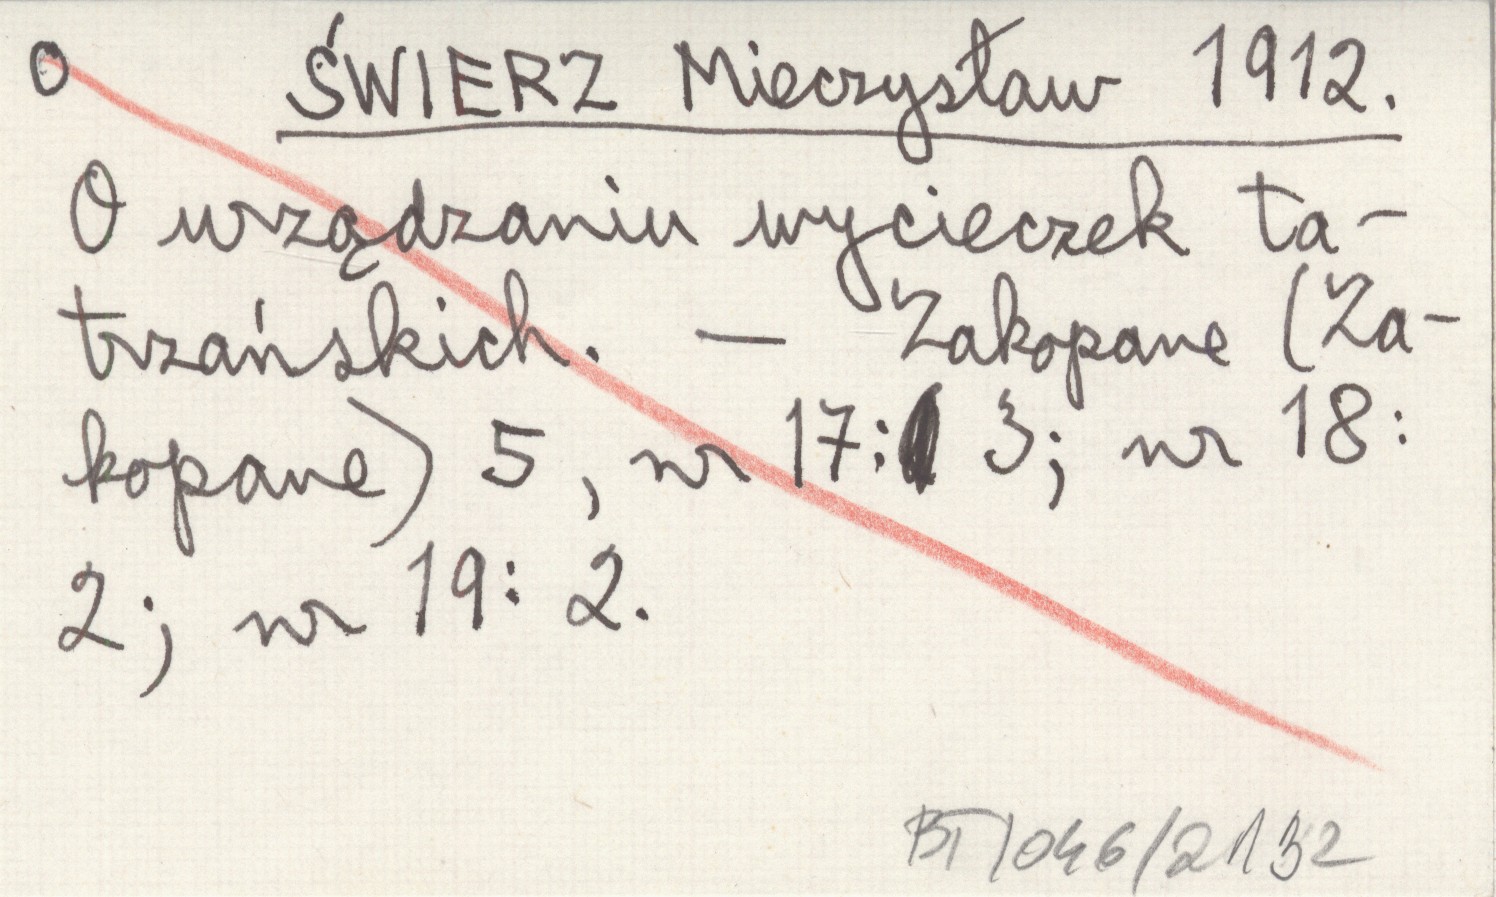 O ŚWIERZ Mieczysław 1912.
O urządzaniu wycieczek ta-
trzańskich. — Zakopane (Za-
kopane) 5, nr 17: 3; nr 18:
2; nr 19: 2.
BT/046/2132